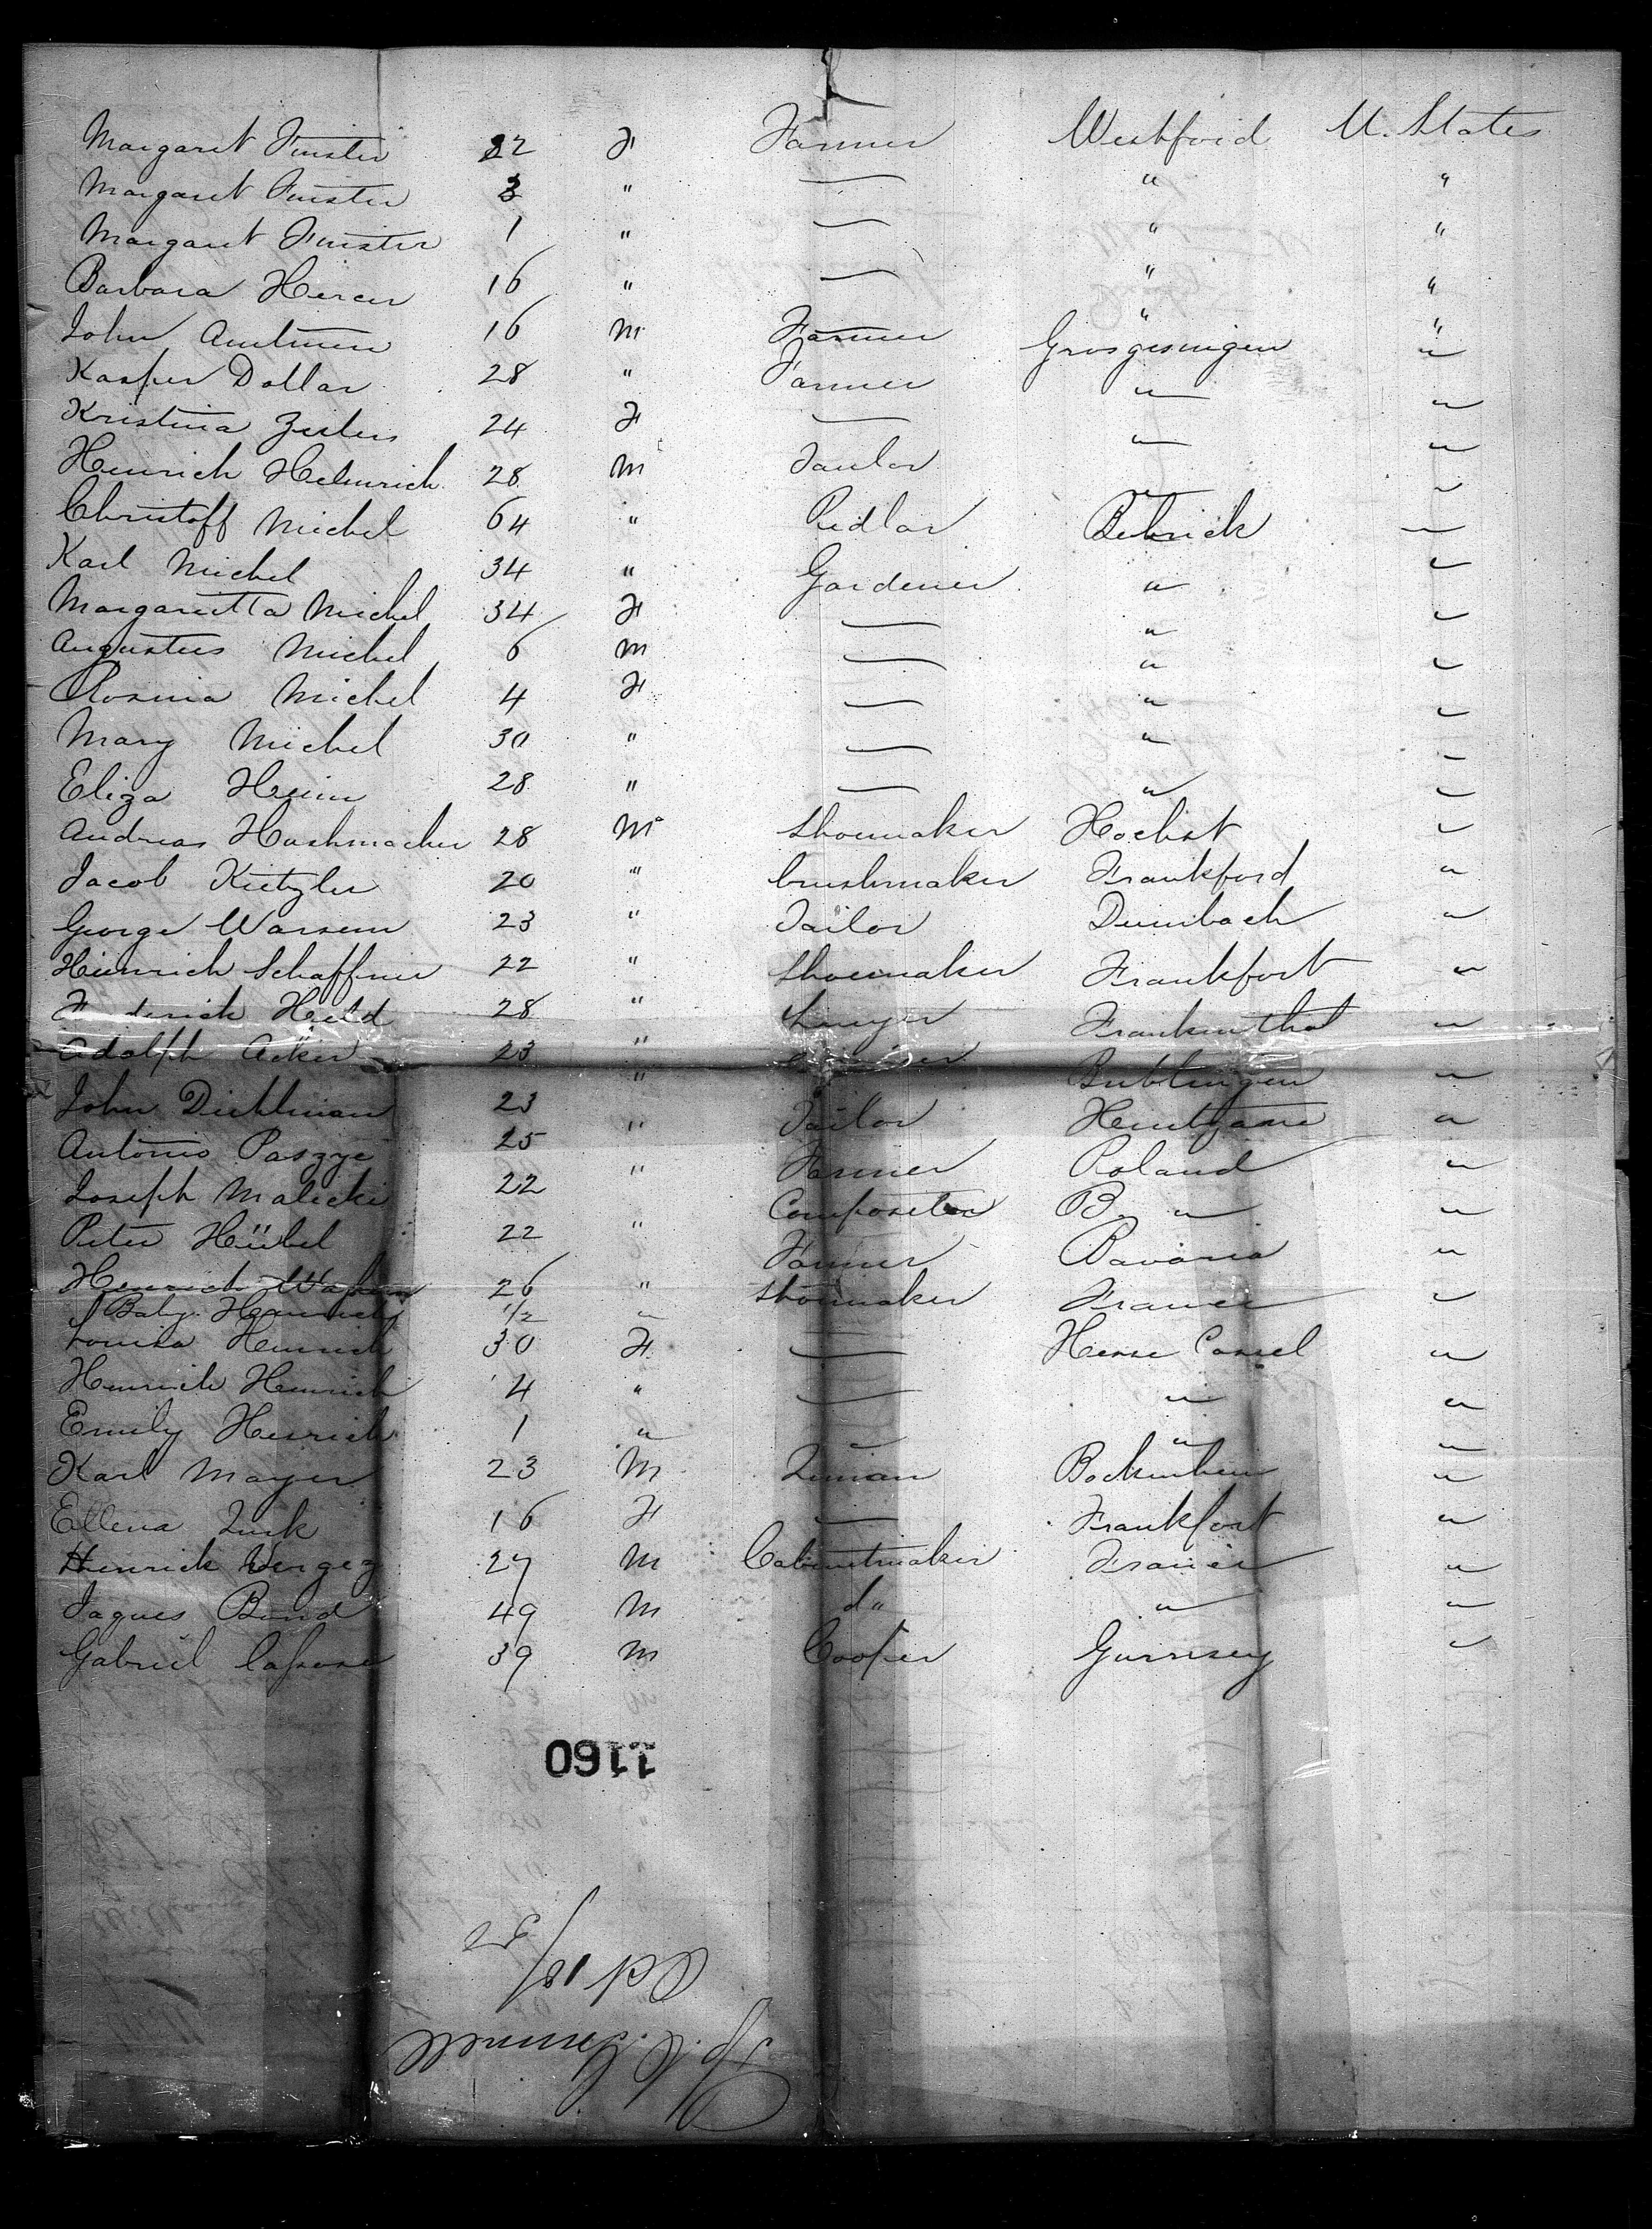 Margaret Finster 32 F Farmer Westford U. States
Margaret Finster 3 " — " "
Margaret Finster 1 " — " "
Barbara Hercer 16 " — " "
John 16 m Farmer " "
Kasper Dollar 28 " Farmer Grosgesingen "
Kristina Zeilers 24 F — " "
Heinrich Helmrich 28 m Tailor " "
Christoff Michel 64 " Pedlar Bebrick "
Karl Michel 34 " Gardener " "
Margarietta Michel 34 F — " "
Augustus Michel 6 m — " "
Rosina Michel 4 F — " "
Mary Michel 30 " — " "
Eliza Heim 28 " — " "
Andreas Hashmacher 28 m Shoemaker Hochst "
Jacob Kietzler 20 " brushmaker Frankford "
George Warsem 23 " Tailor Dumbach "
Heinrich Schaffner 22 " Shoemaker Frankfort "
Frederick Held 28 " Frankenthal "
Adolph Acker 23 " "
John Dichlman 23 " Tailor "
Antonio Paszye 25 " Farmer Poland "
Joseph Malecki 22 Compositor B. " "
Peter Hübel 22 " Farmer Bavaria "
Heinrich 26 " Shoemaker France "
Baby 1/2 "
Louisa Heinrich 30 F — Hesse Cassel "
Heinrich Heinrich 4 " — " "
Emily Heinrich 1 " — " "
Karl Mayer 23 m Bockenheim "
Ellena Zink 16 F — Frankfort "
Henrick Vergez 27 m Cabinetmaker France "
Jaques Bund 49 m do " "
Gabriel 39 m Cooper Gurnsey "
1160
Oct 18/52